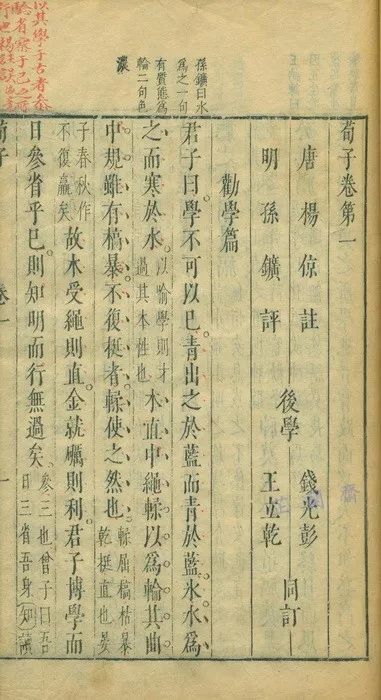 荀子卷第一
唐楊倞註
明孫鑛評
後學
錢光彭
王立乾
同訂
勸學篇
君子曰學不可以已青出之於藍而青於藍冰水爲
之而寒於水以喻學則才過其本性也木直中繩輮以爲輪其曲
中規雖有槁暴不復挺者輮使之然也輮屈槁枯暴乾挺直也晏
子春秋作不復贏矣故木受繩則直金就礪則利君子博學而
日參省乎己則知明而行無過矣參三也曾子曰吾日三省吾身知讀
孫鑛曰水
爲之一句
有質態爲
輪二句色
濃
荀子
卷一
一